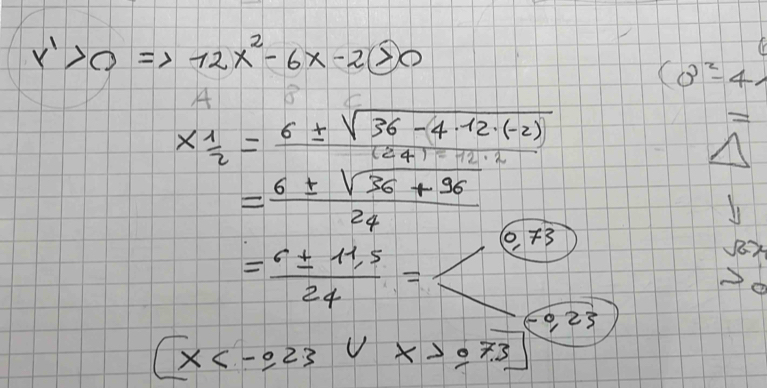 Y' > 0 => 12x² - 6x - 2 > 0
A B C
x 1/2 = 6 ± √36 - (4·12·(-2)
(24) = 12·2
= 6 ± √36 + 96
24
= 6 ± 11,5 =
24
0,73
-0,23
[x < -0,23 ∨ x > 0,73]
=
△
↓
> 0